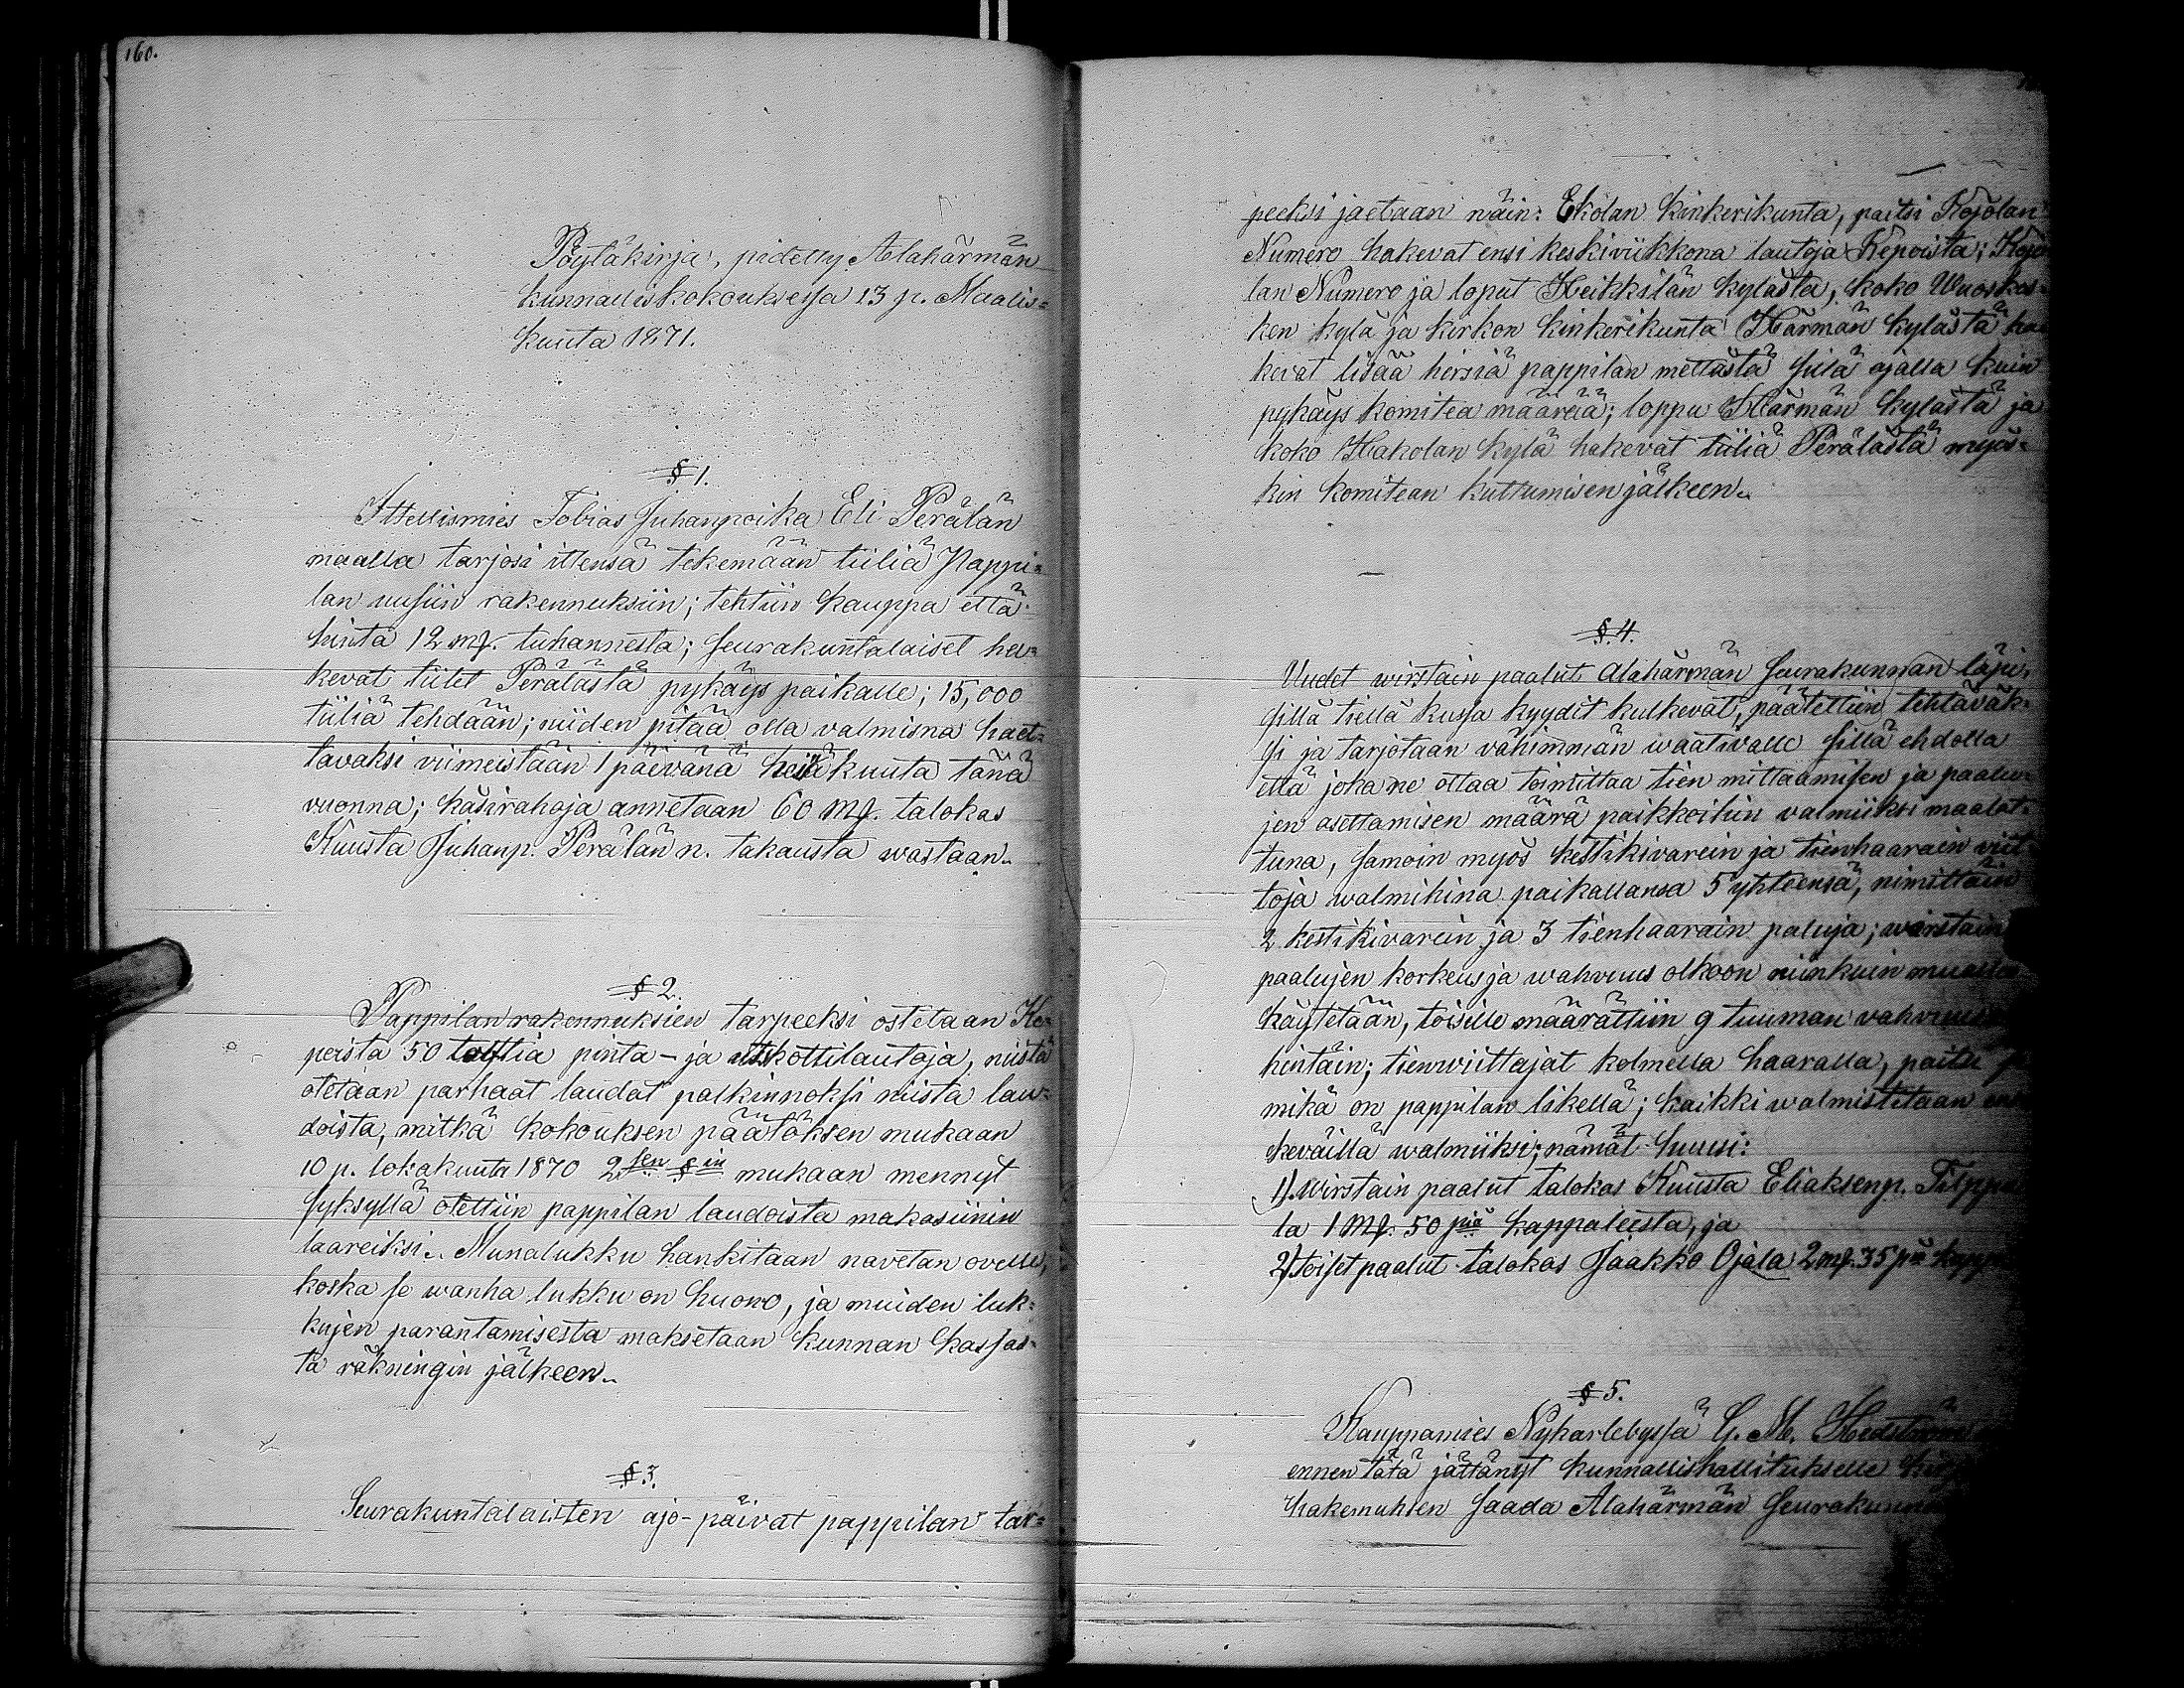 160.
Pöytäkirja, pidetty Alahärmän
kunnalliskokouksessa 13 p. Maalis=
kuuta 1871.
§ 1.
Ittellismies Tobias Juhanpoika Eli Perälän
maalla tarjosi ittensä tekemään tiiliä Pappi=
lan uusiin rakennuksiin; tehtiin kauppa että
hinta 12 mk. tuhannesta; seurakuntalaiset ha=
kevat tiilet Perälästä pykäys paikalle; 15,000
tiiliä tehdään; niiden pitää olla valmisna haet=
tavaksi viimeistään 1 päevänä heinäkuuta tänä
vuonna; käsirahoja annetaan 60 mk. talokas
Kuusta Juhanp. Perälän n. takausta wastaan.
§ 2.
Pappilan rakennuksien tarpeeksi ostetaan Ke=
poista 50 tolftia pinta- ja kottilautoja, niistä
otetaan parhaat laudat palkinnoksi niista lau=
doista, mitkä kokouksen päätöksen mukaan
10 p. lokakuuta 1870 2sen §in mukaan mennyt
syksyllä otettiin pappilan laudoista makasiinin
laareiksi. Munalukku hankitaan navetan ovelle,
koska se wanha lukku on huono, ja muiden luk=
kujen parantamisesta maksetaan kunnan kassas=
ta räkningin jälkeen.
§ 3.
Seurakuntalaisten ajo-päivat pappilan tar=
peeksi jaetaan näin: Ekolan kinkerikunta, paitsi Kojolan
Numero hakevat ensi keskiviikkona lautoja Kepoista; Kojo
lan Numero ja loput Heikkilän kylästä, koko Wuoskos=
ken kylä ja kirkon kinkerikunta Härmän kylästä ha
kevat lisää hirsiä pappilan mettästä sillä ajalla kuin
pykäys komitea määrää; loppu Härmän kylästä ja
koko Hakolan kylä hakevat tiiliä Perälästä myös=
kin komitean kuttumisen jälkeen.
§ 4.
Uudet wirstain paalut Alahärmän seurakunnan läpi,
sillä tiellä kussa kyydit kulkevat, päätettiin tehtäväk=
si ja tarjotaan vähimmän waativalle sillä ehdolla
että joka ne ottaa toimittaa tien mittaamisen ja paalu=
jen asettamisen määrä paikkoihin valmiiksi maalat=
tuna, samoin myös kestikivarein ja tienhaarain viit
toja walmihina paikallansa 5 yhteensä, nimittäin
2 kestikivarein ja 3 tienhaarain paluja; wirstain
paalujen korkeus ja wahvuus olkoon niinkuin muualla
käytetään, toisille määrättiin 9 tuuman vahvuus
hintäin; tienwiittajat kolmella haaralla, paitsi
mikä on pappilan likellä; kaikki walmistetaan
keväillä walmiiksi; nämät huusi:
1). Wirstain paalut talokas Kuusta Eliaksenp. Filppu
la 1 mk. 50 piä kappaleesta, ja
2) toiset paalut talokas Jaakko Ojala 2 mk. 35 piä kapp
§ 5.
Kauppamies Nykarlebyssä G. M. Hedström
ennen tätä jättänyt kunnallishallitukselle
hakemuksen saada Alahärmän seurakunnan